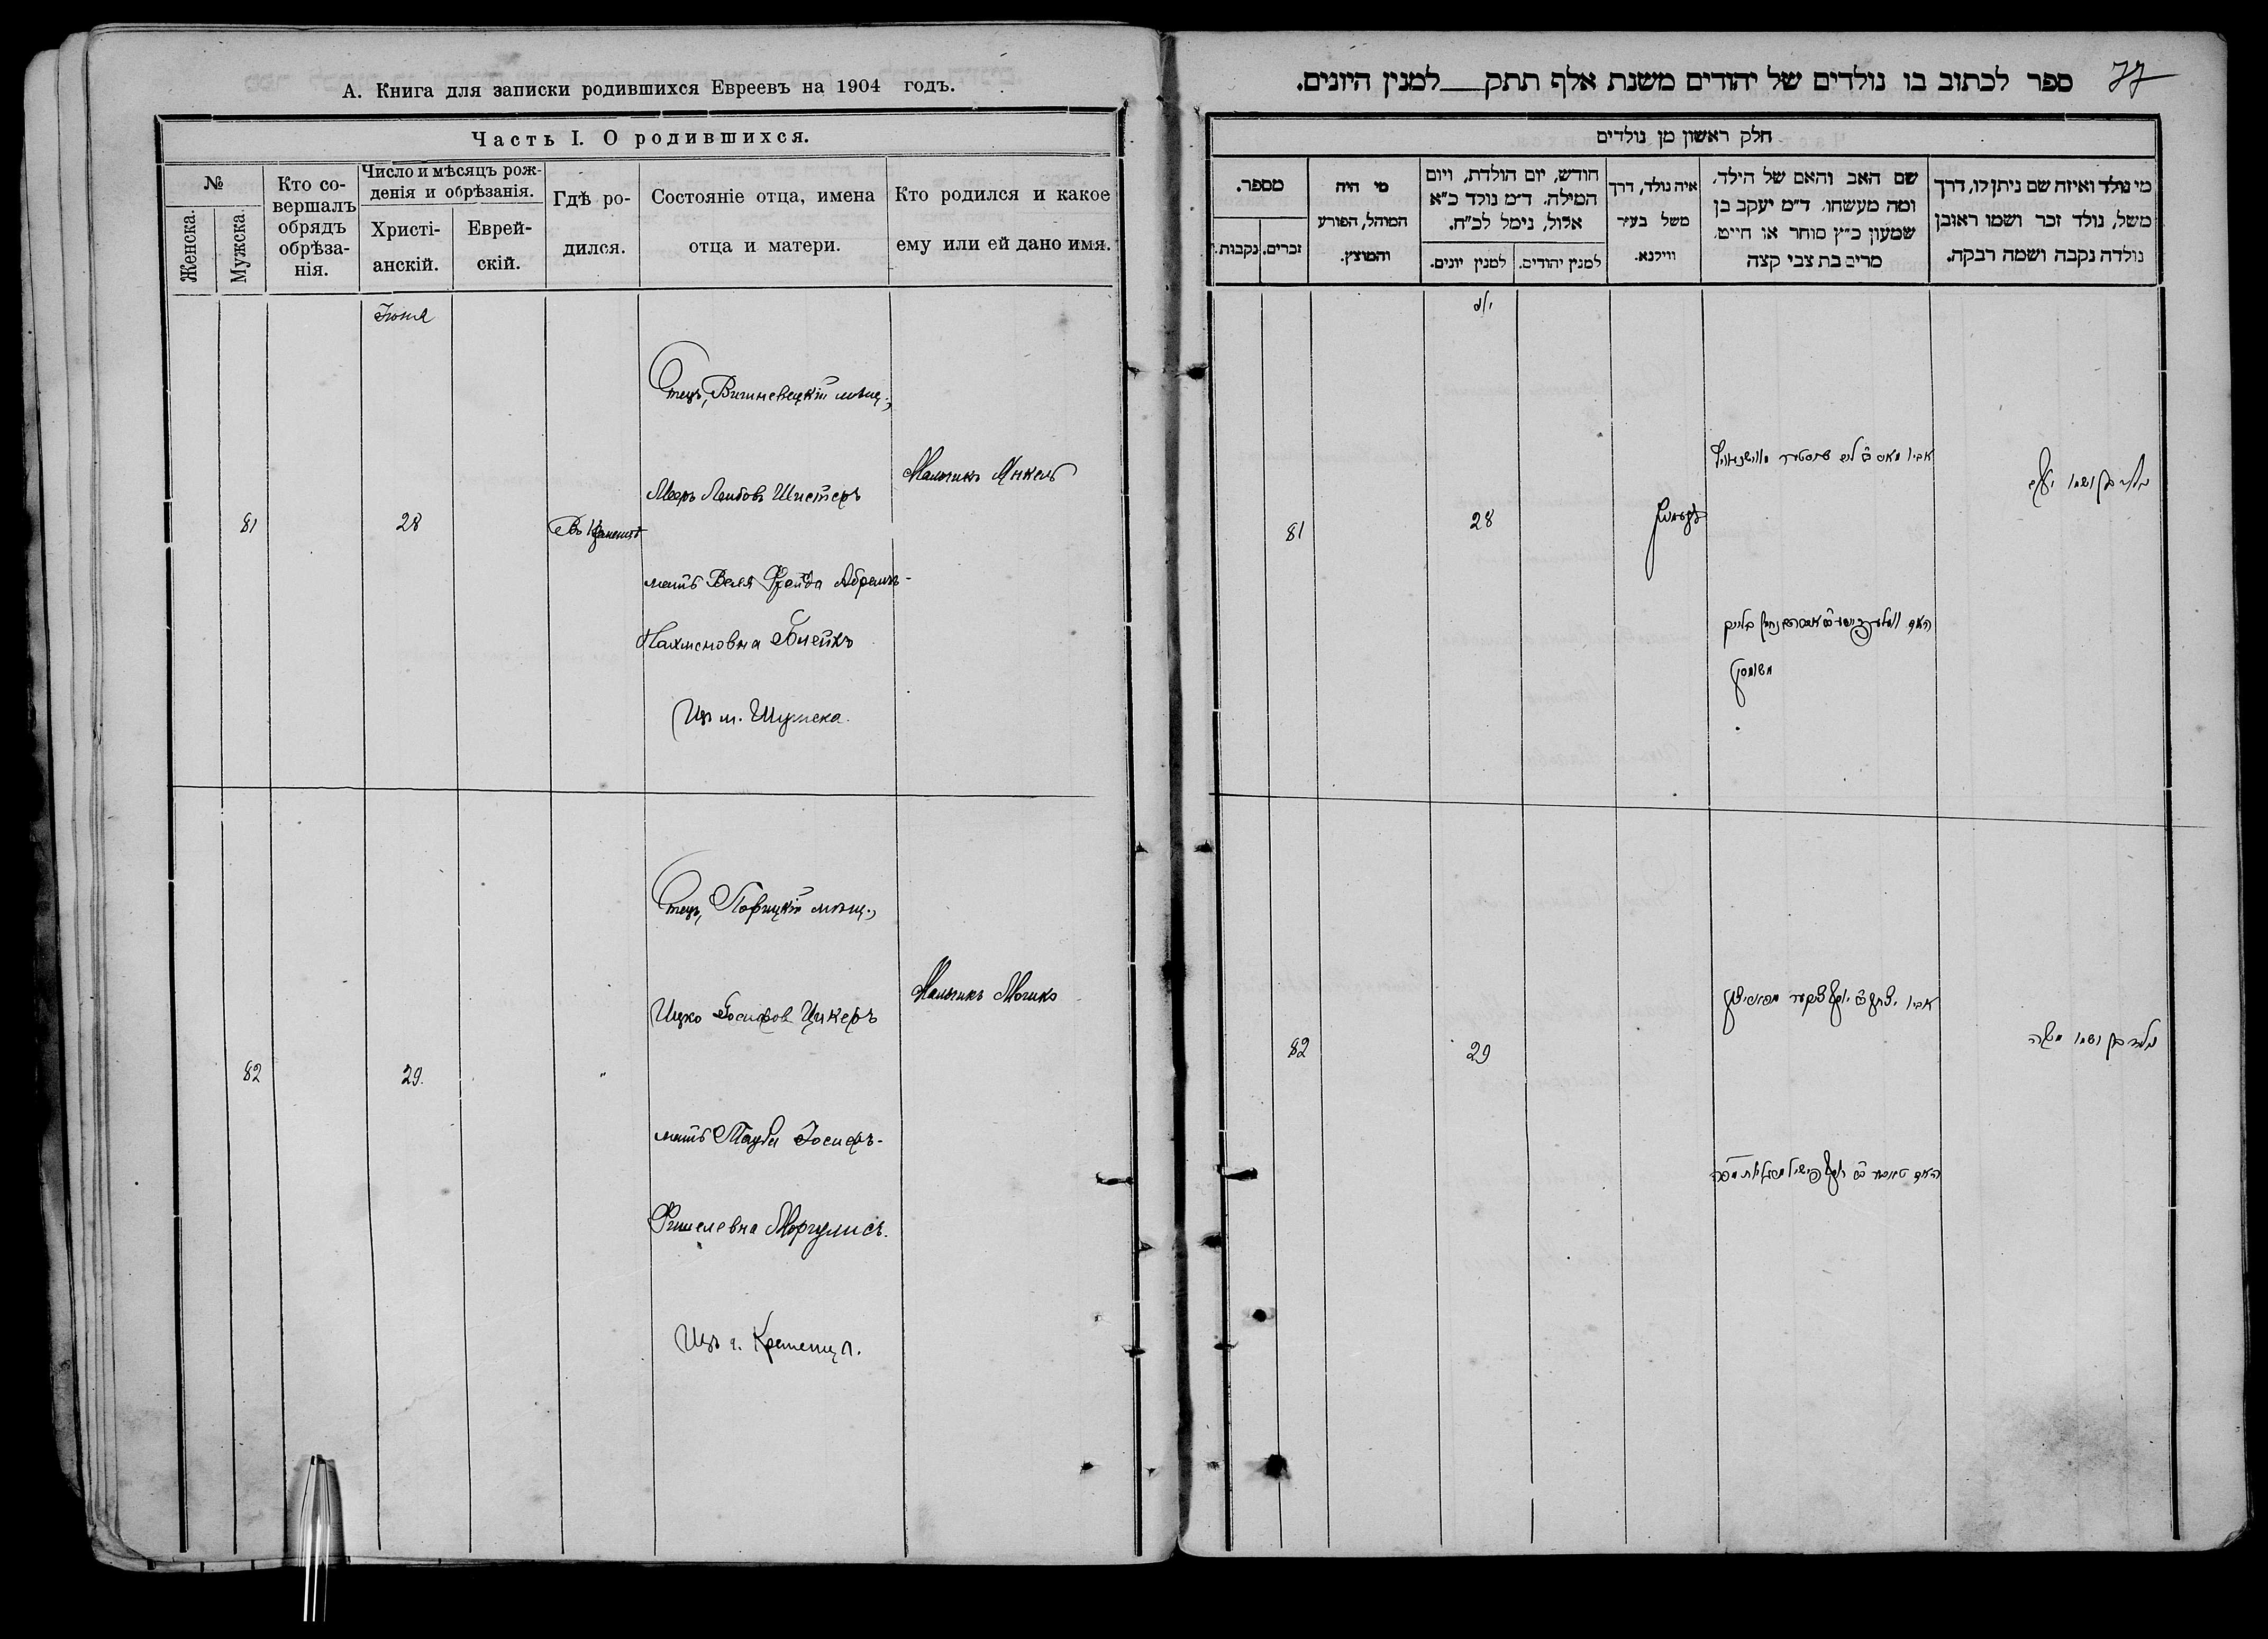 А. Книга для записки родившихся Евреевъ на 1904 годъ.
Часть I. О родившихся.
№
Женска.
Мужска.
Кто со-
вершалъ
обрядъ
обрѣза-
нія.
Число и мѣсяцъ рож-
денія и обрѣзанія.
Христі-
анскій.
Еврей-
скій.
Гдѣ ро-
дился.
Состояніе отца, имена
отца и матери.
Кто родился и какое
ему или ей дано имя.
Іюня
81
28
Въ Кременцѣ
Отецъ, Вишневецкій мѣщ.,
Мееръ Лейбовъ Шистеръ
мать Беля Фрейда Абрамъ-
Нахмоновна Блейкъ
Из м. Шумска.
Мальчикъ Янкель
82
29.
"
Отецъ, Порицкій мѣщ.,
Ицко Іосифов Цукеръ
мать Тауба Іосифъ-
Фишелевна Моргулисъ.
Изъ г. Кременца.
Мальчикъ Мошко
77
ספר לכתוב בו נולדים של יהודים משנת אלף תתק___למנין היונים.
חלק ראשון מן נולדים
מי נולד ואיזה שם ניתן לו, דרך
משל, נולד זכר ושמו ראובן
נולדה נקבה ושמה רבקה.
שם האב והאם של הילד,
ומה מעשהו. ד״מ יעקב בן
שמעון כ״ץ סוחר או חייט,
מרים בת צבי קצה
איה נולד, דרך
משל בעיר
ווילנא.
חודש, יום הולדת, ויום
המילה. ד״מ נולד כ״א
אלול, נימל לכ״ח.
למנין יהודים.
למנין יונים.
מי היה
המוהל, הפורע
והמוצץ.
מספר.
זכרים.
נקבות.
81
28
נולד בן ושמו יעקב
82
29
אביו יצחק ב יוסף צוקער
נולד בן ושמו משה